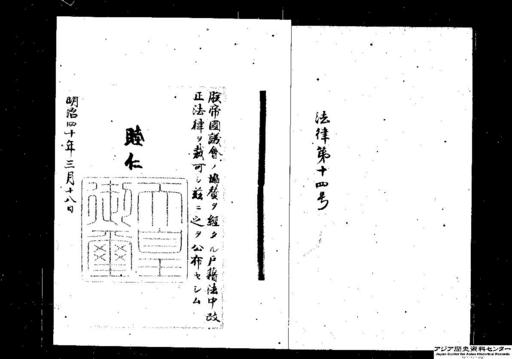 法律第十四号
朕帝國議會ノ協賛ヲ經タル戸籍法中改
正法律ヲ裁可シ茲ニ之ヲ公布セシム
睦仁
天皇
御璽
明治四十年三月十八日
アジア歴史資料センター
Japan Center for Asian Historical Records